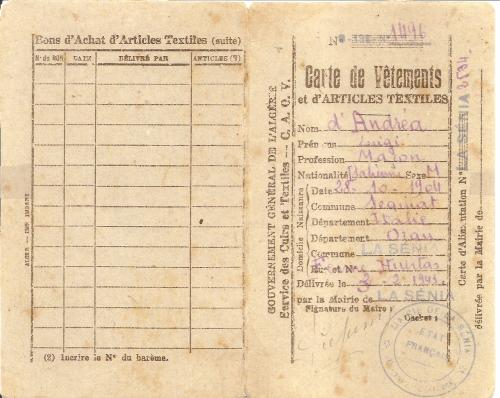 Bons d'Achat d'Articles Textiles (suite)
N° de BON DATE DÉLIVRÉ PAR ARTICLES (2)
(2) Incrire le N° du barème.
GOUVERNEMENT GÉNÉRAL DE L'ALGÉRIE
Service des Cuirs et Textiles — C. A. O. V.
N° 1496
Carte de Vêtements
et d'ARTICLES TEXTILES
Nom d'Andréa
Prénoms Luigi
Profession Maçon
Nationalité Italienne Sexe M
Naissance
Date 28-10-1904
Commune
Département Italie
Domicile
Département Oran
Commune LA SÉNIA
Rue et N°
Délivrée le 2-1943
par la Mairie de LA SÉNIA
Signature du Maire : Cachet :
ETAT FRANÇAIS
Carte d'Alimentation N° LA SÉNIA
délivrée par la Mairie de